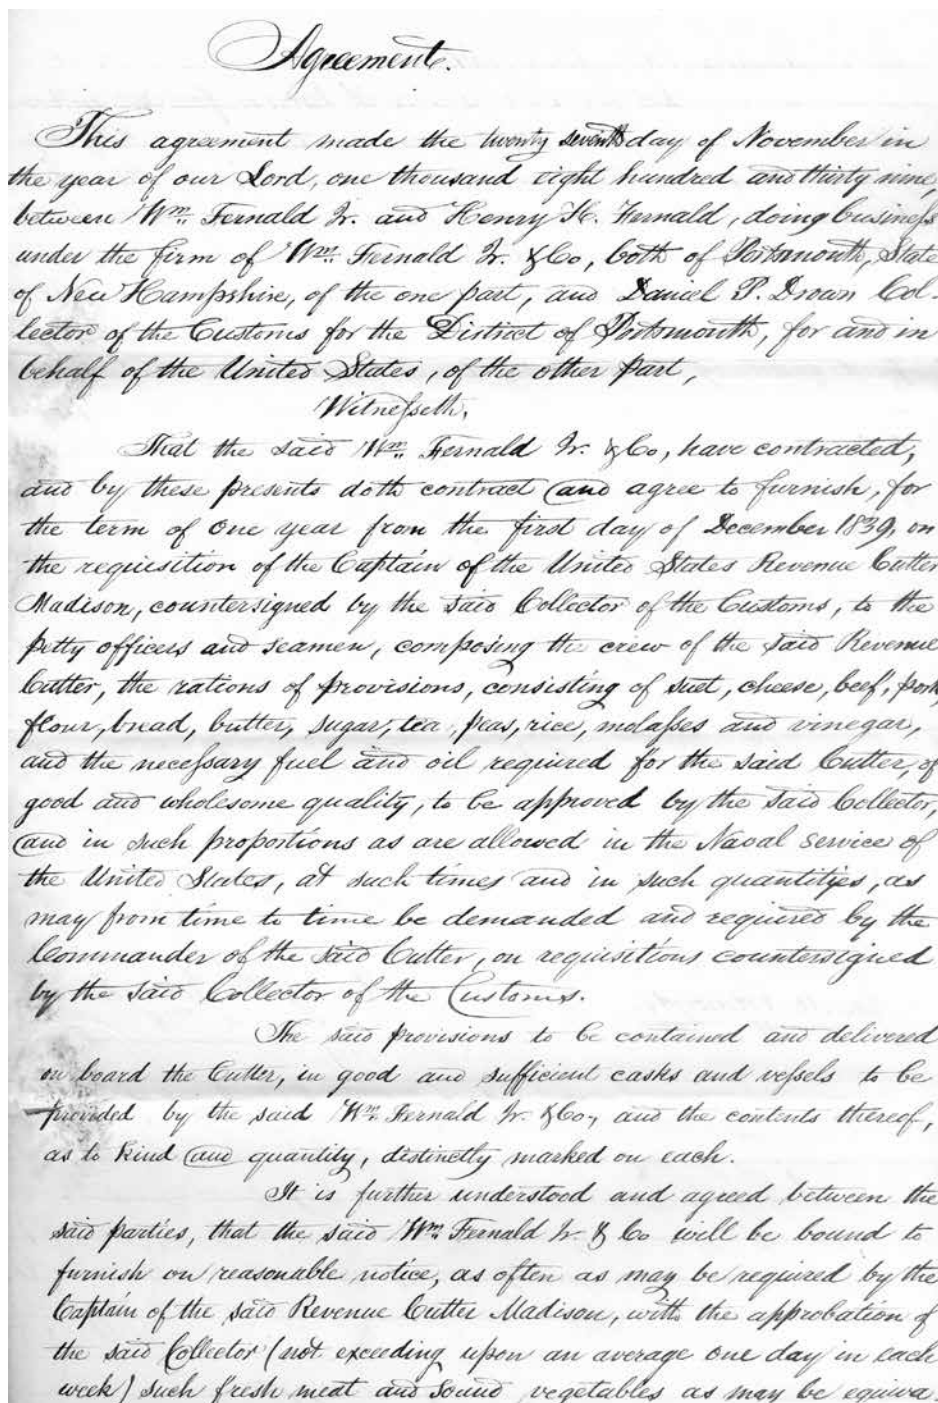 Agreement.
This agreement made the twenty seventh day of November in
the year of our Lord, one thousand eight hundred and thirty nine,
between Wm. Fernald Jr. and Henry H. Fernald, doing business
under the firm of Wm. Fernald Jr. & Co, both of Portsmouth, State
of New Hampshire, of the one part, and Daniel P. Drown Col-
lector of the Customs for the District of Portsmouth, for and in
behalf of the United States, of the other part,
Witnesseth,
That the said Wm. Fernald Jr. & Co, have contracted,
and by these presents doth contract and agree to furnish, for
the term of one year from the first day of December 1839, on
the requisition of the Captain of the United States Revenue Cutter
Madison, countersigned by the said Collector of the Customs, to the
petty officers and seamen, composing the crew of the said Revenue
Cutter, the rations of provisions, consisting of suet, cheese, beef, pork,
flour, bread, butter, sugar, tea, peas, rice, molasses and vinegar,
and the necessary fuel and oil required for the said Cutter, of
good and wholesome quality, to be approved by the said Collector,
and in such proportions as are allowed in the Naval service of
the United States, at such times and in such quantityes, as
may from time to time be demanded and required by the
Commander of the said Cutter, on requisitions countersigned
by the said Collector of the Customs.
The said provisions to be contained and delivered
on board the Cutter, in good and sufficient casks and vessels to be
provided by the said Wm. Fernald Jr. & Co, and the contents thereof,
as to kind and quantity, distinctly marked on each.
It is further understood and agreed between the
said parties, that the said Wm. Fernald Jr & Co will be bound to
furnish on reasonable notice, as often as may be required by the
Captain of the said Revenue Cutter Madison, with the approbation of
the said Collector (not exceeding upon an average one day in each
week) such fresh meat and sound vegetables as may be equiva-